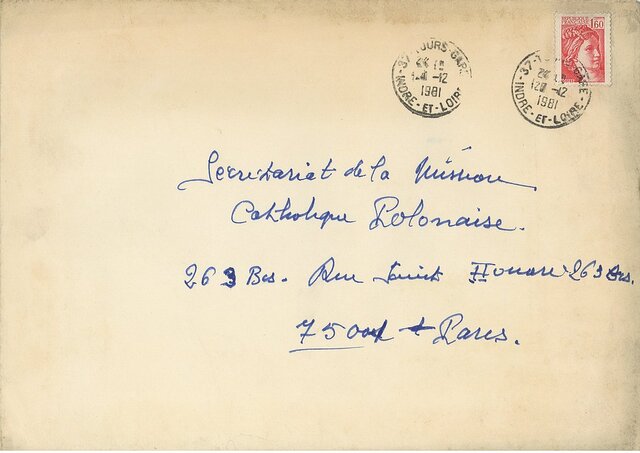 1,60
37-TOURS-GARE
-12
1981
INDRE-ET-LOIRE
37-TOURS-GARE
-12
1981
INDRE-ET-LOIRE
Secretariat de la Mission
Catholique Polonaise.
263 Bis. Rue Saint Honore 263 Bis.
75001 Paris.